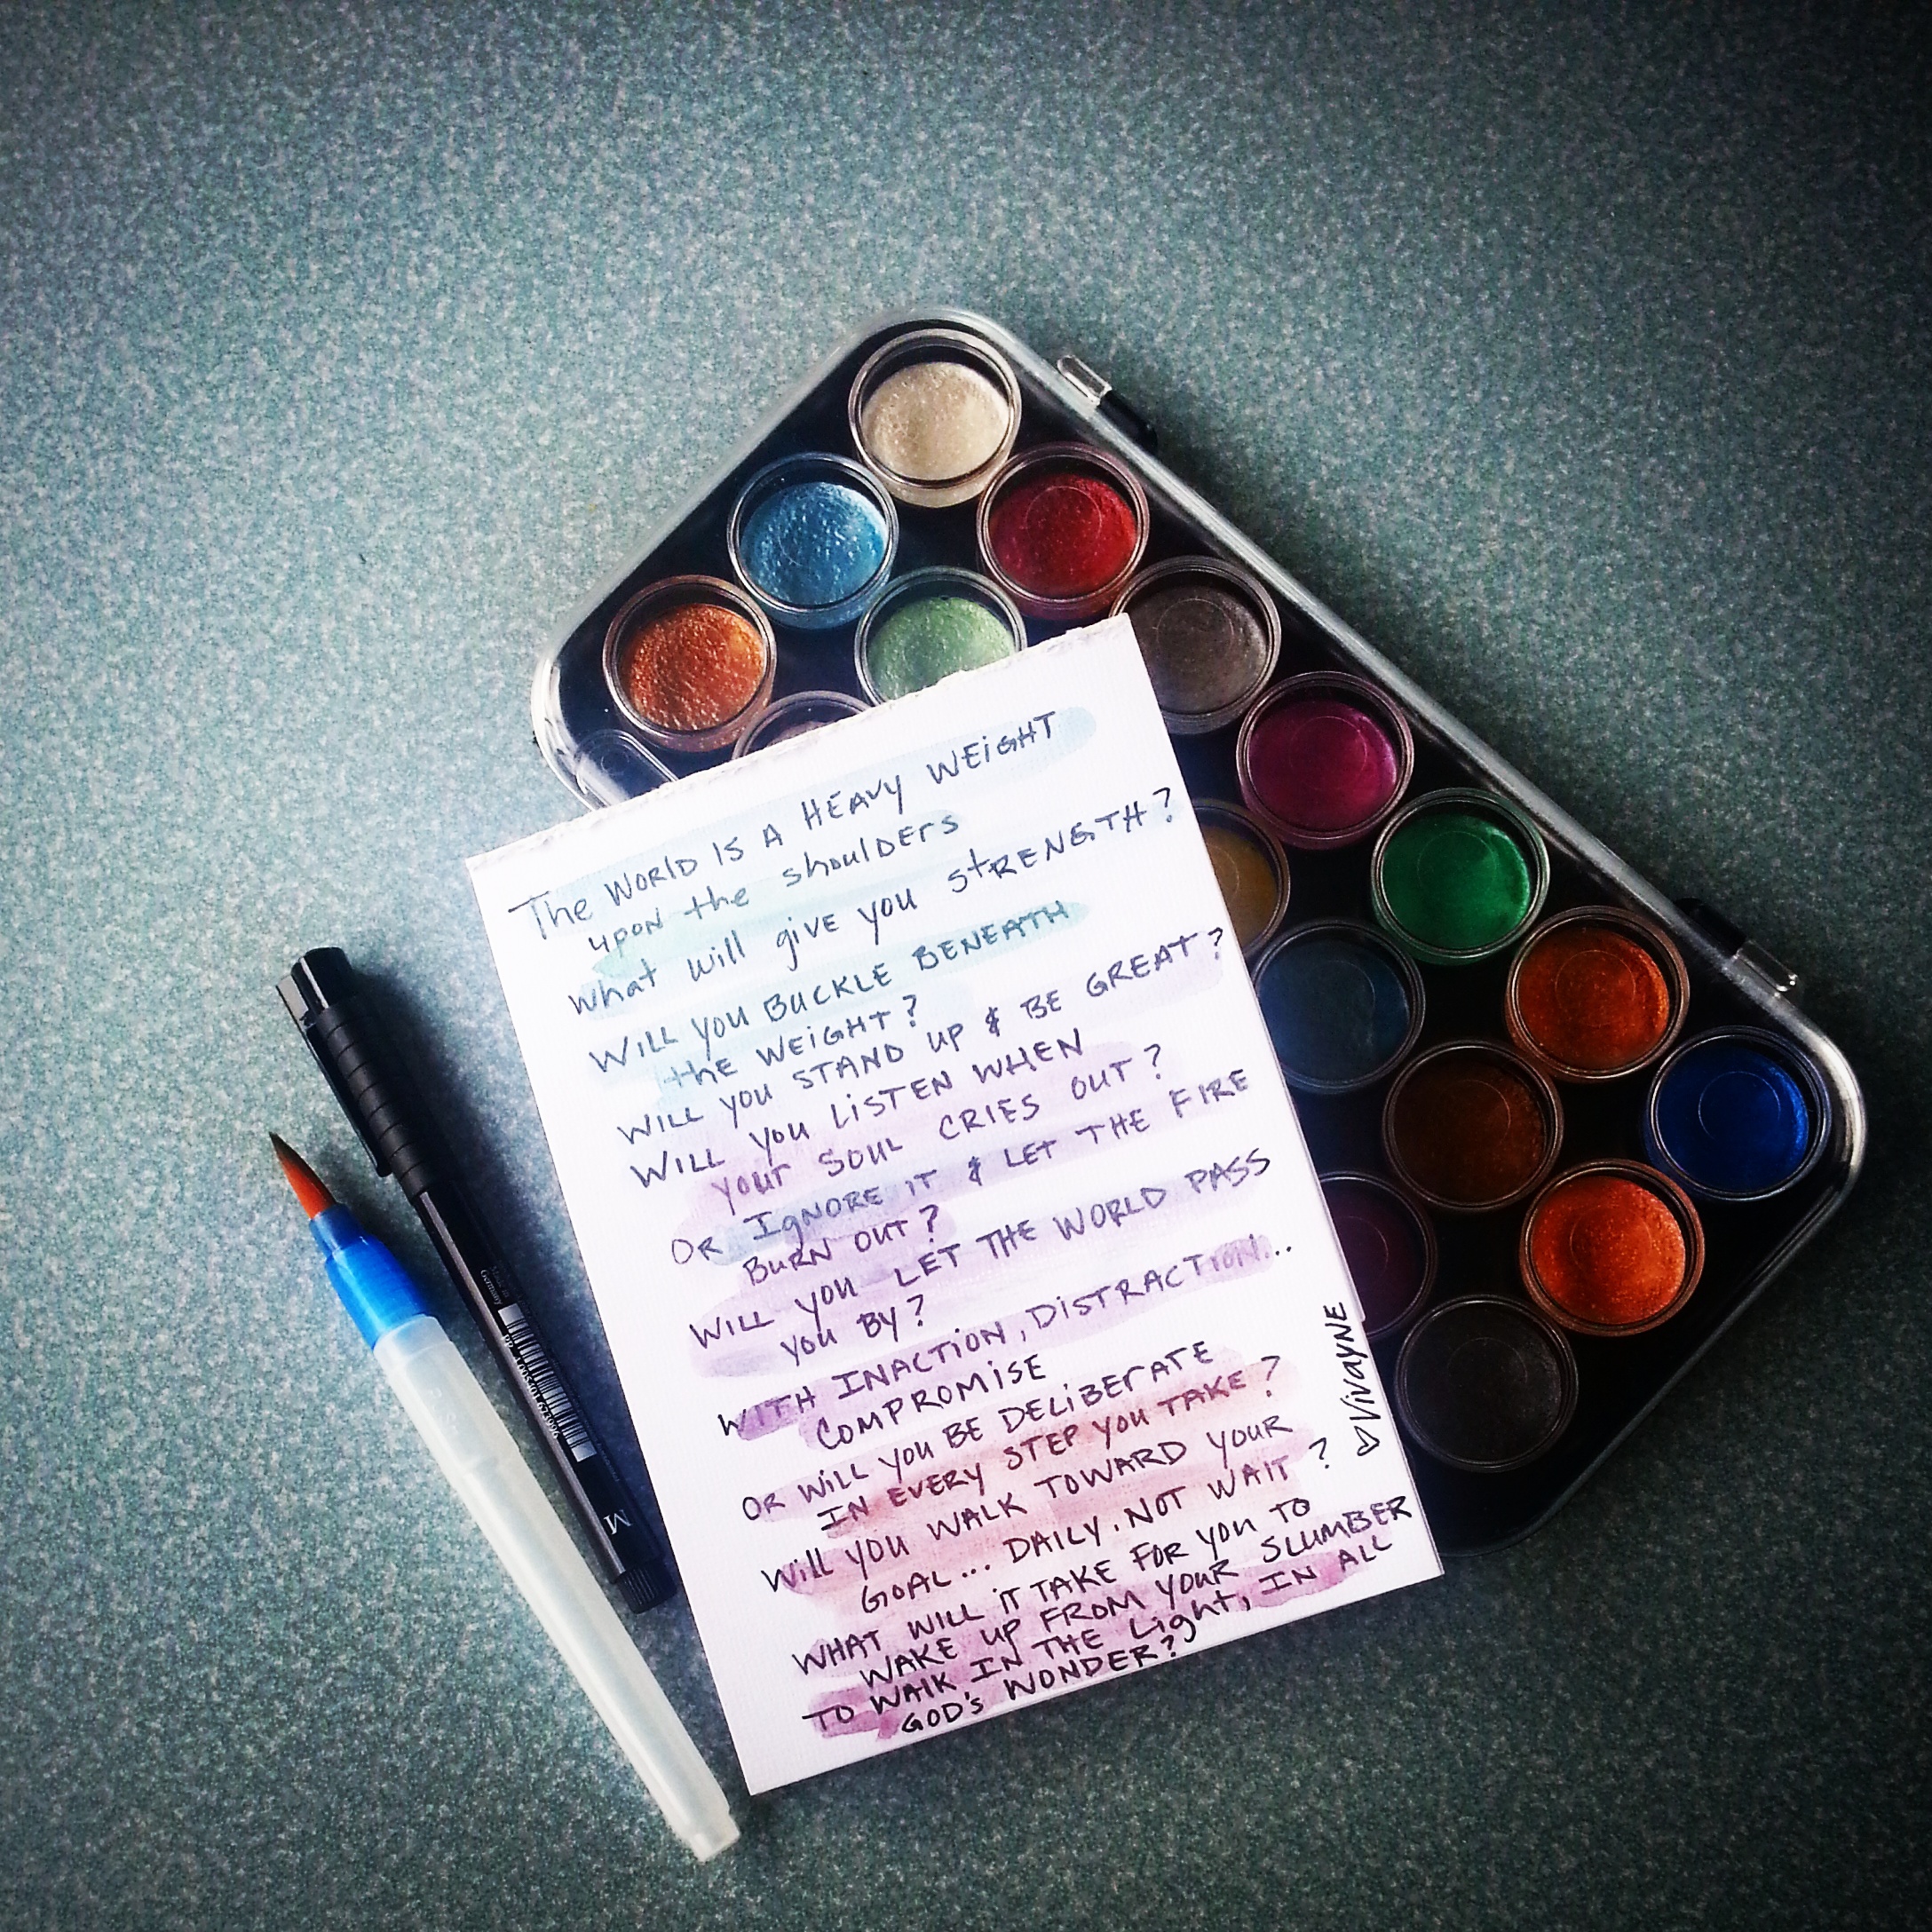 The WORLD IS A HEAVY WEIGHT
upon the shoulDers
what will give you stRENGTH?
WILL YOU BUCKLE BENEATH
the WEIGHT?
WILL YOU STAND UP & BE GREAT?
WILL YOU LISTEN WHEN
YOUR SOUL CRIES OUT?
OR IgNORE IT & LET THE FIRE
BURN OUT?
WILL YOU LET THE WORLD PASS
YOU BY?
WITH INACTION, DISTRACTION...
COMPROMISE
OR WILL YOU BE DELIBERATE
IN EVERY STEP YOU TAKE?
Will YOU WALK TOWARD YOUR
GOAL... DAILY. NOT WAIT?
WHAT WILL IT TAKE FOR YOU TO
WAKE UP FROM YOUR SLUMBER
TO WALK IN THE Light, IN ALL
GOD'S WONDER?
♡VivaYNE
Germany
M